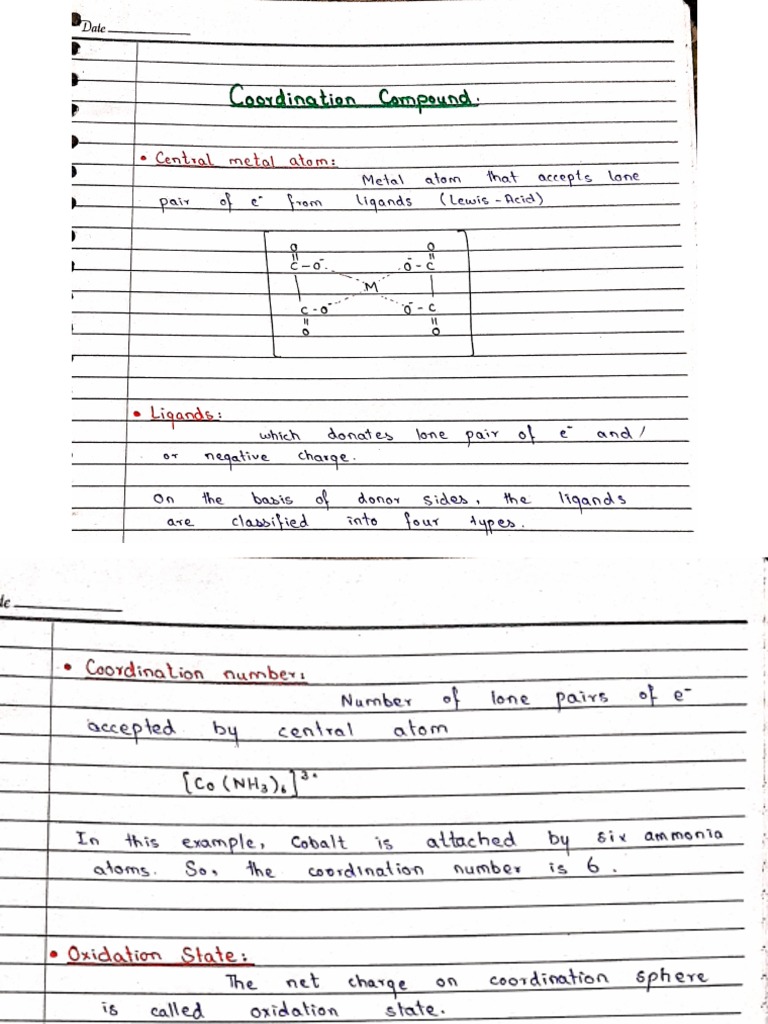 Date
Coordination Compound.
• Central metal atom:
Metal atom that accepts lone
pair of e⁻ from ligands (Lewis-Acid)
O O
C-O⁻ O⁻-C
M
C-O⁻ O⁻-C
O O
• Ligands:
which donates lone pair of e⁻ and/
or negative charge.
On the basis of donor sides, the ligands
are classified into four types.
te
• Coordination number:
Number of lone pairs of e⁻
accepted by central atom
[Co(NH₃)₆]³⁺
In this example, Cobalt is attached by six ammonia
atoms. So, the coordination number is 6.
• Oxidation State:
The net charge on coordination sphere
is called oxidation state.